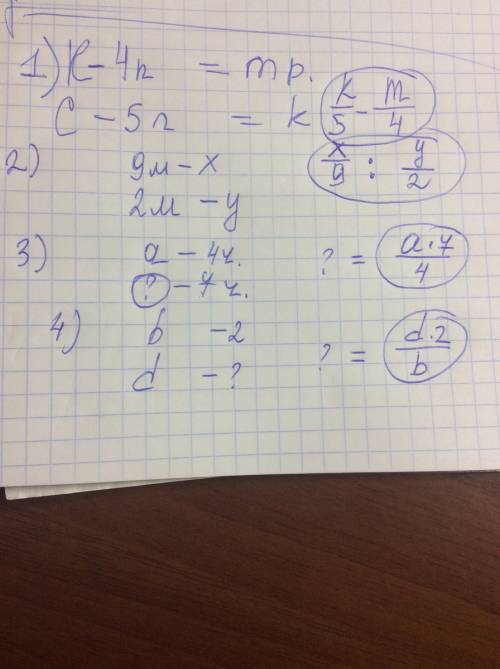 1) К – 4п = m р.
С – 5п = k k/5 – m/4
2) 9м – х x/9 : y/2
2м – у
3) a – 4ч. ? = a·7/4
? – 7ч.
4) b – 2 ? = d·2/b
d – ?